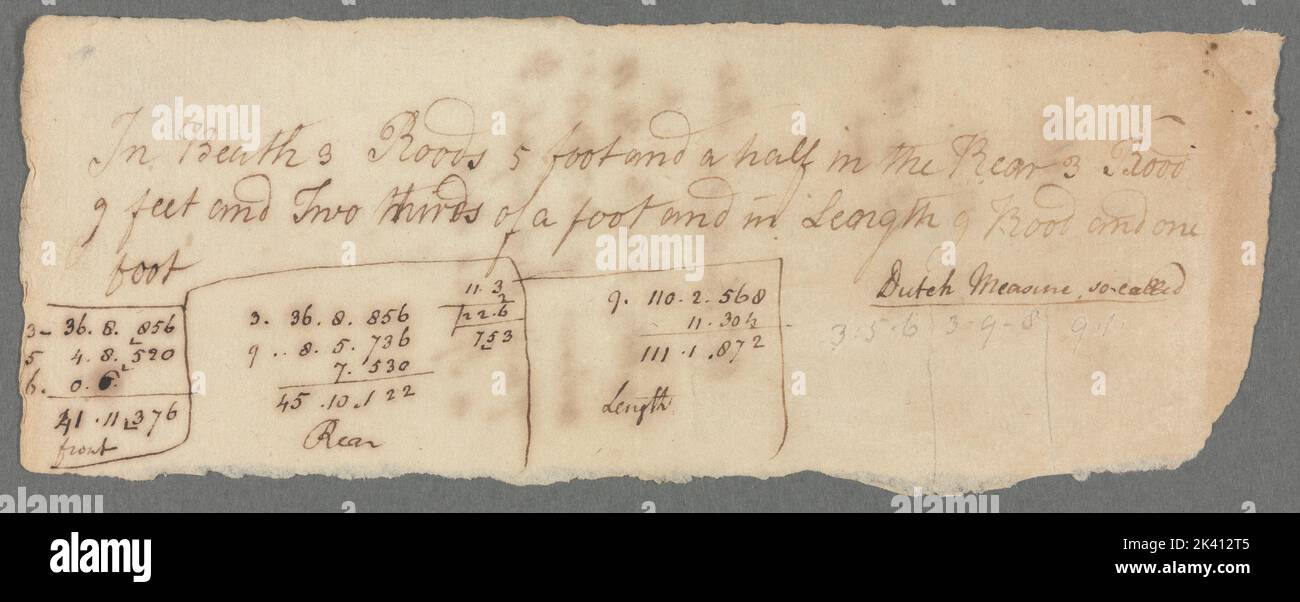 In Breath 3 Roods 5 foot and a half in the Rear 3 Rood
9 feet and Two thirds of a foot and in Length 9 Rood and one
foot
Dutch Measure, so-called
3.5.6 3-9-8 9.1
3- 36. 8. 856
5 4. 8. 520
6. 0. 6.
41. 11. 376
front
3. 36. 8. 856
9 .. 8. 5. 736
7. 530
45. 10. 122
Rear
11. 3
2
22. 6
753
9. 110. 2. 568
11. 304
111. 1. 872
Length
alamy
Image ID: 2K412T5
www.alamy.com